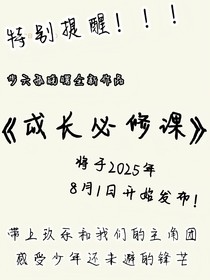 特别提醒！！！
全新作品
《成长必修课》
将于2025年
8月1日开始发布！
带上玖和我们的主角团
感受少年还未避的锋芒